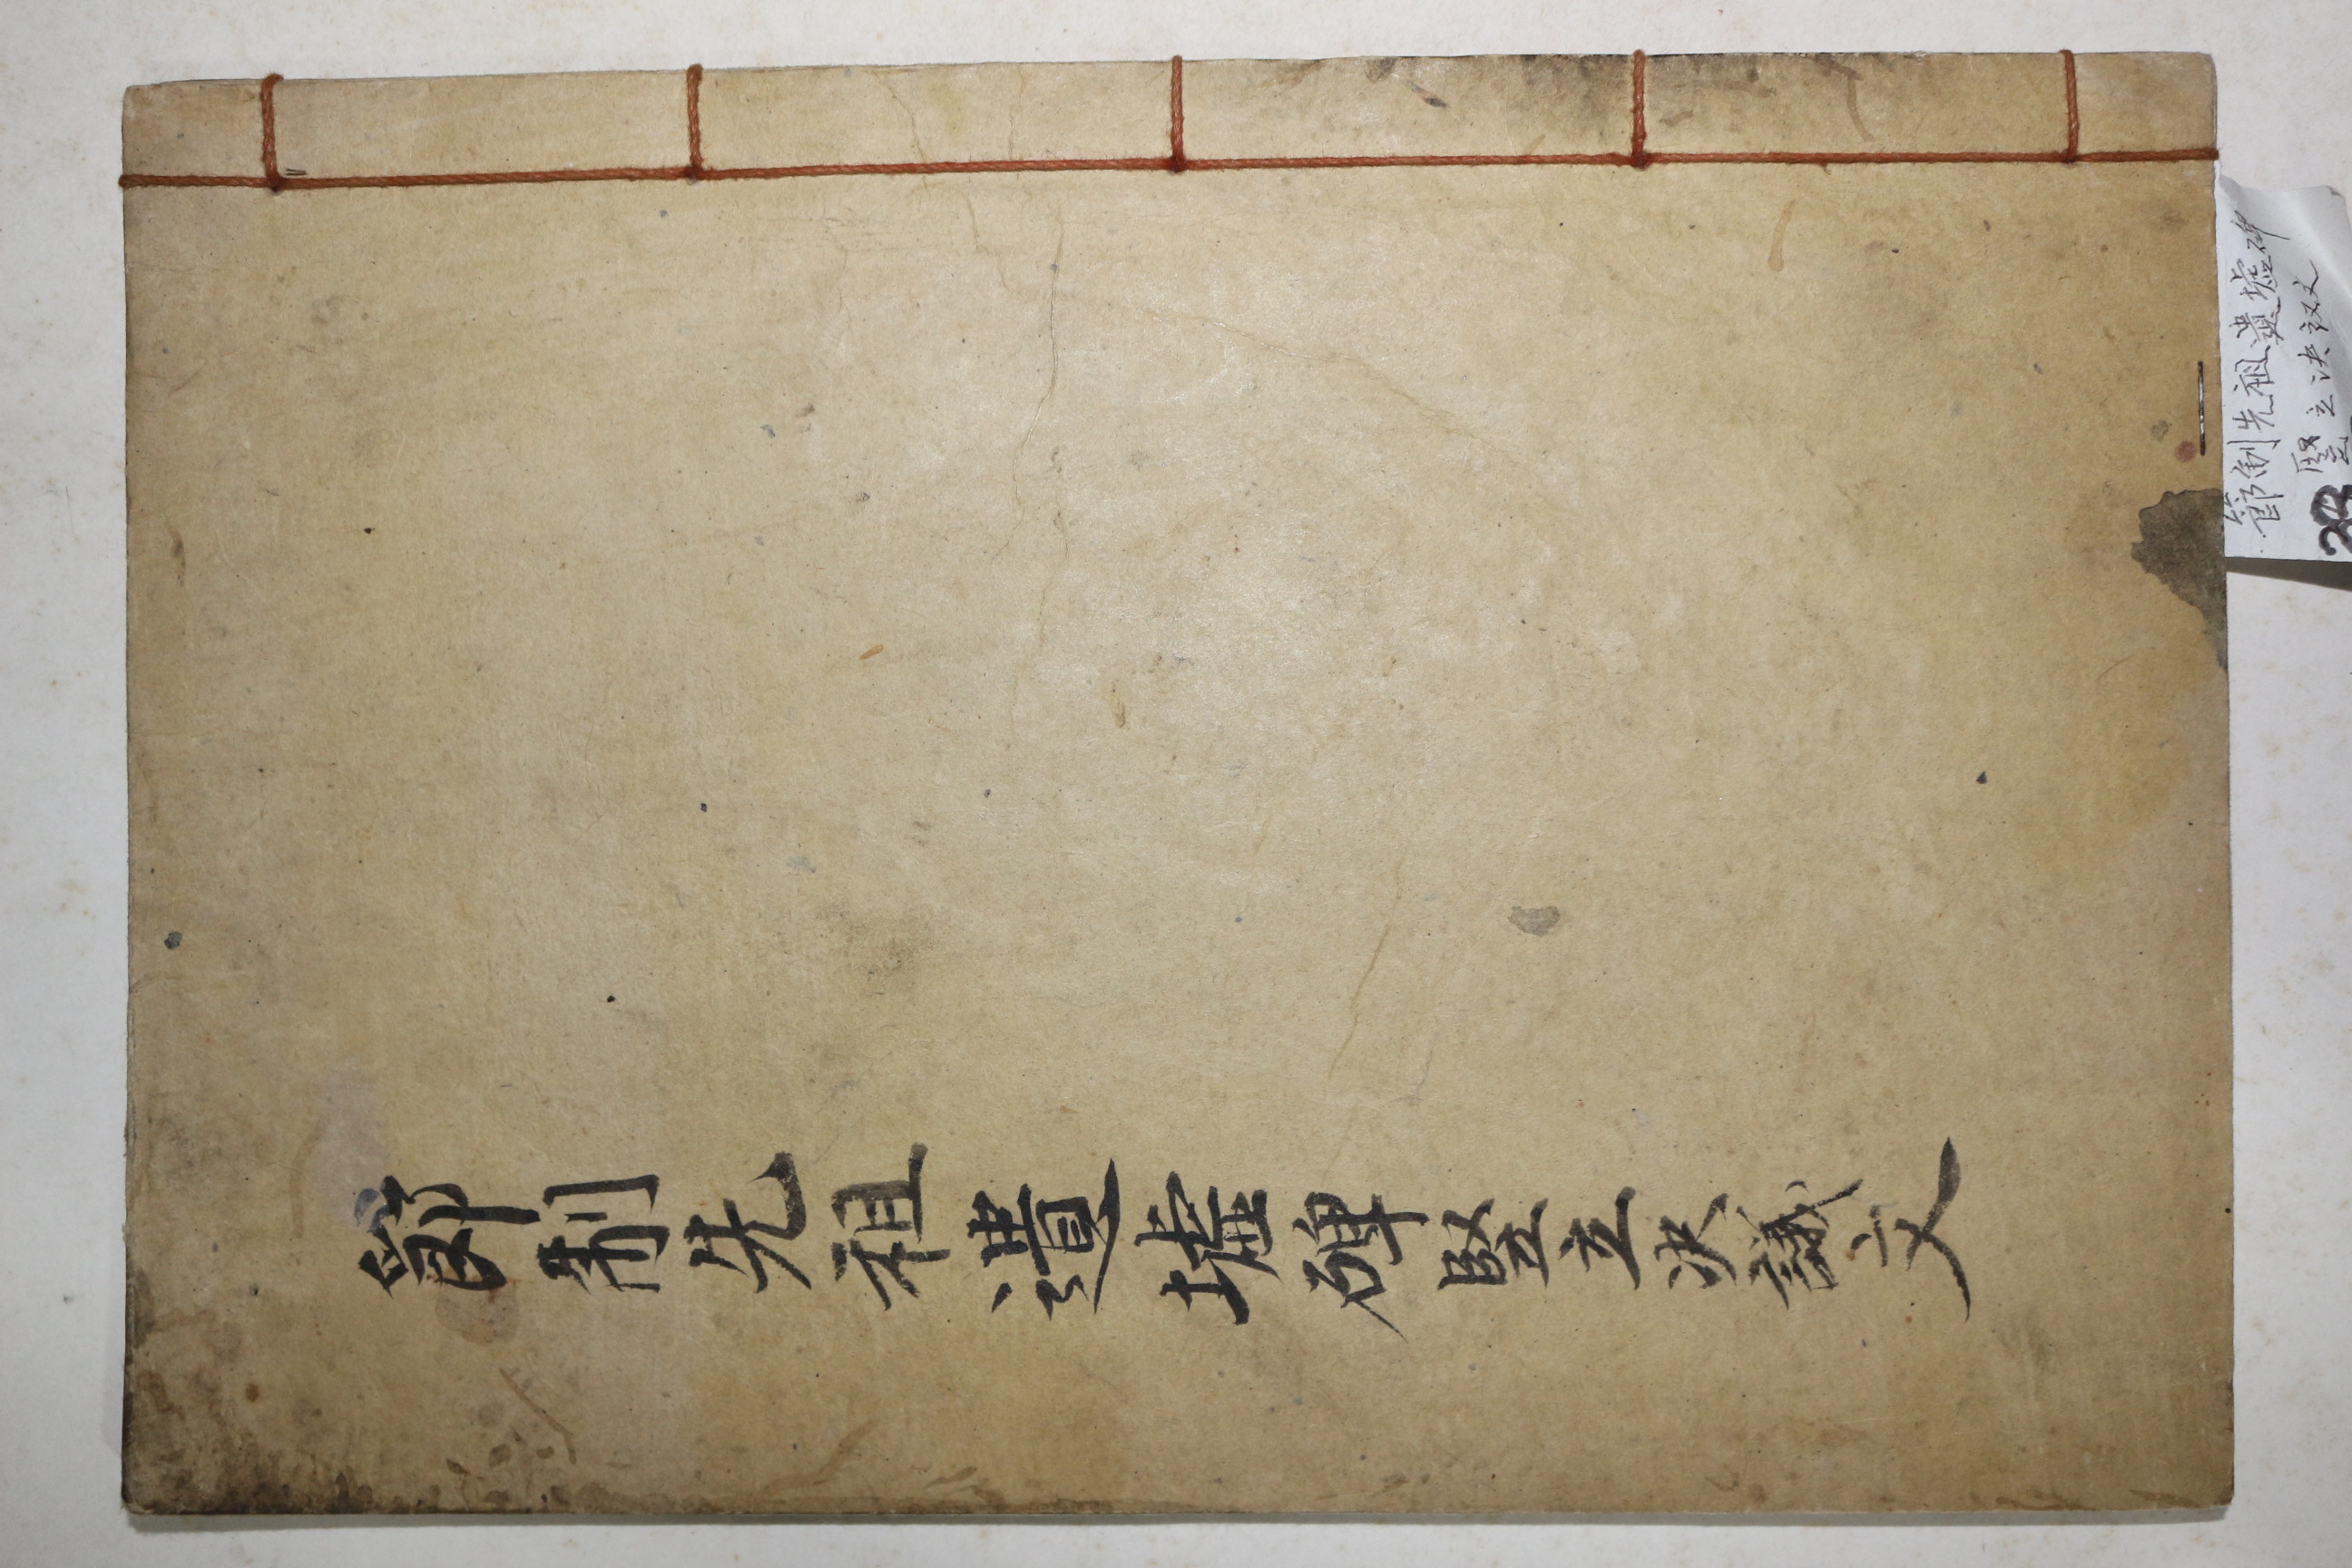 節制先祖遺墟碑竪立决議文
節制先祖遺墟碑
竪立决议文